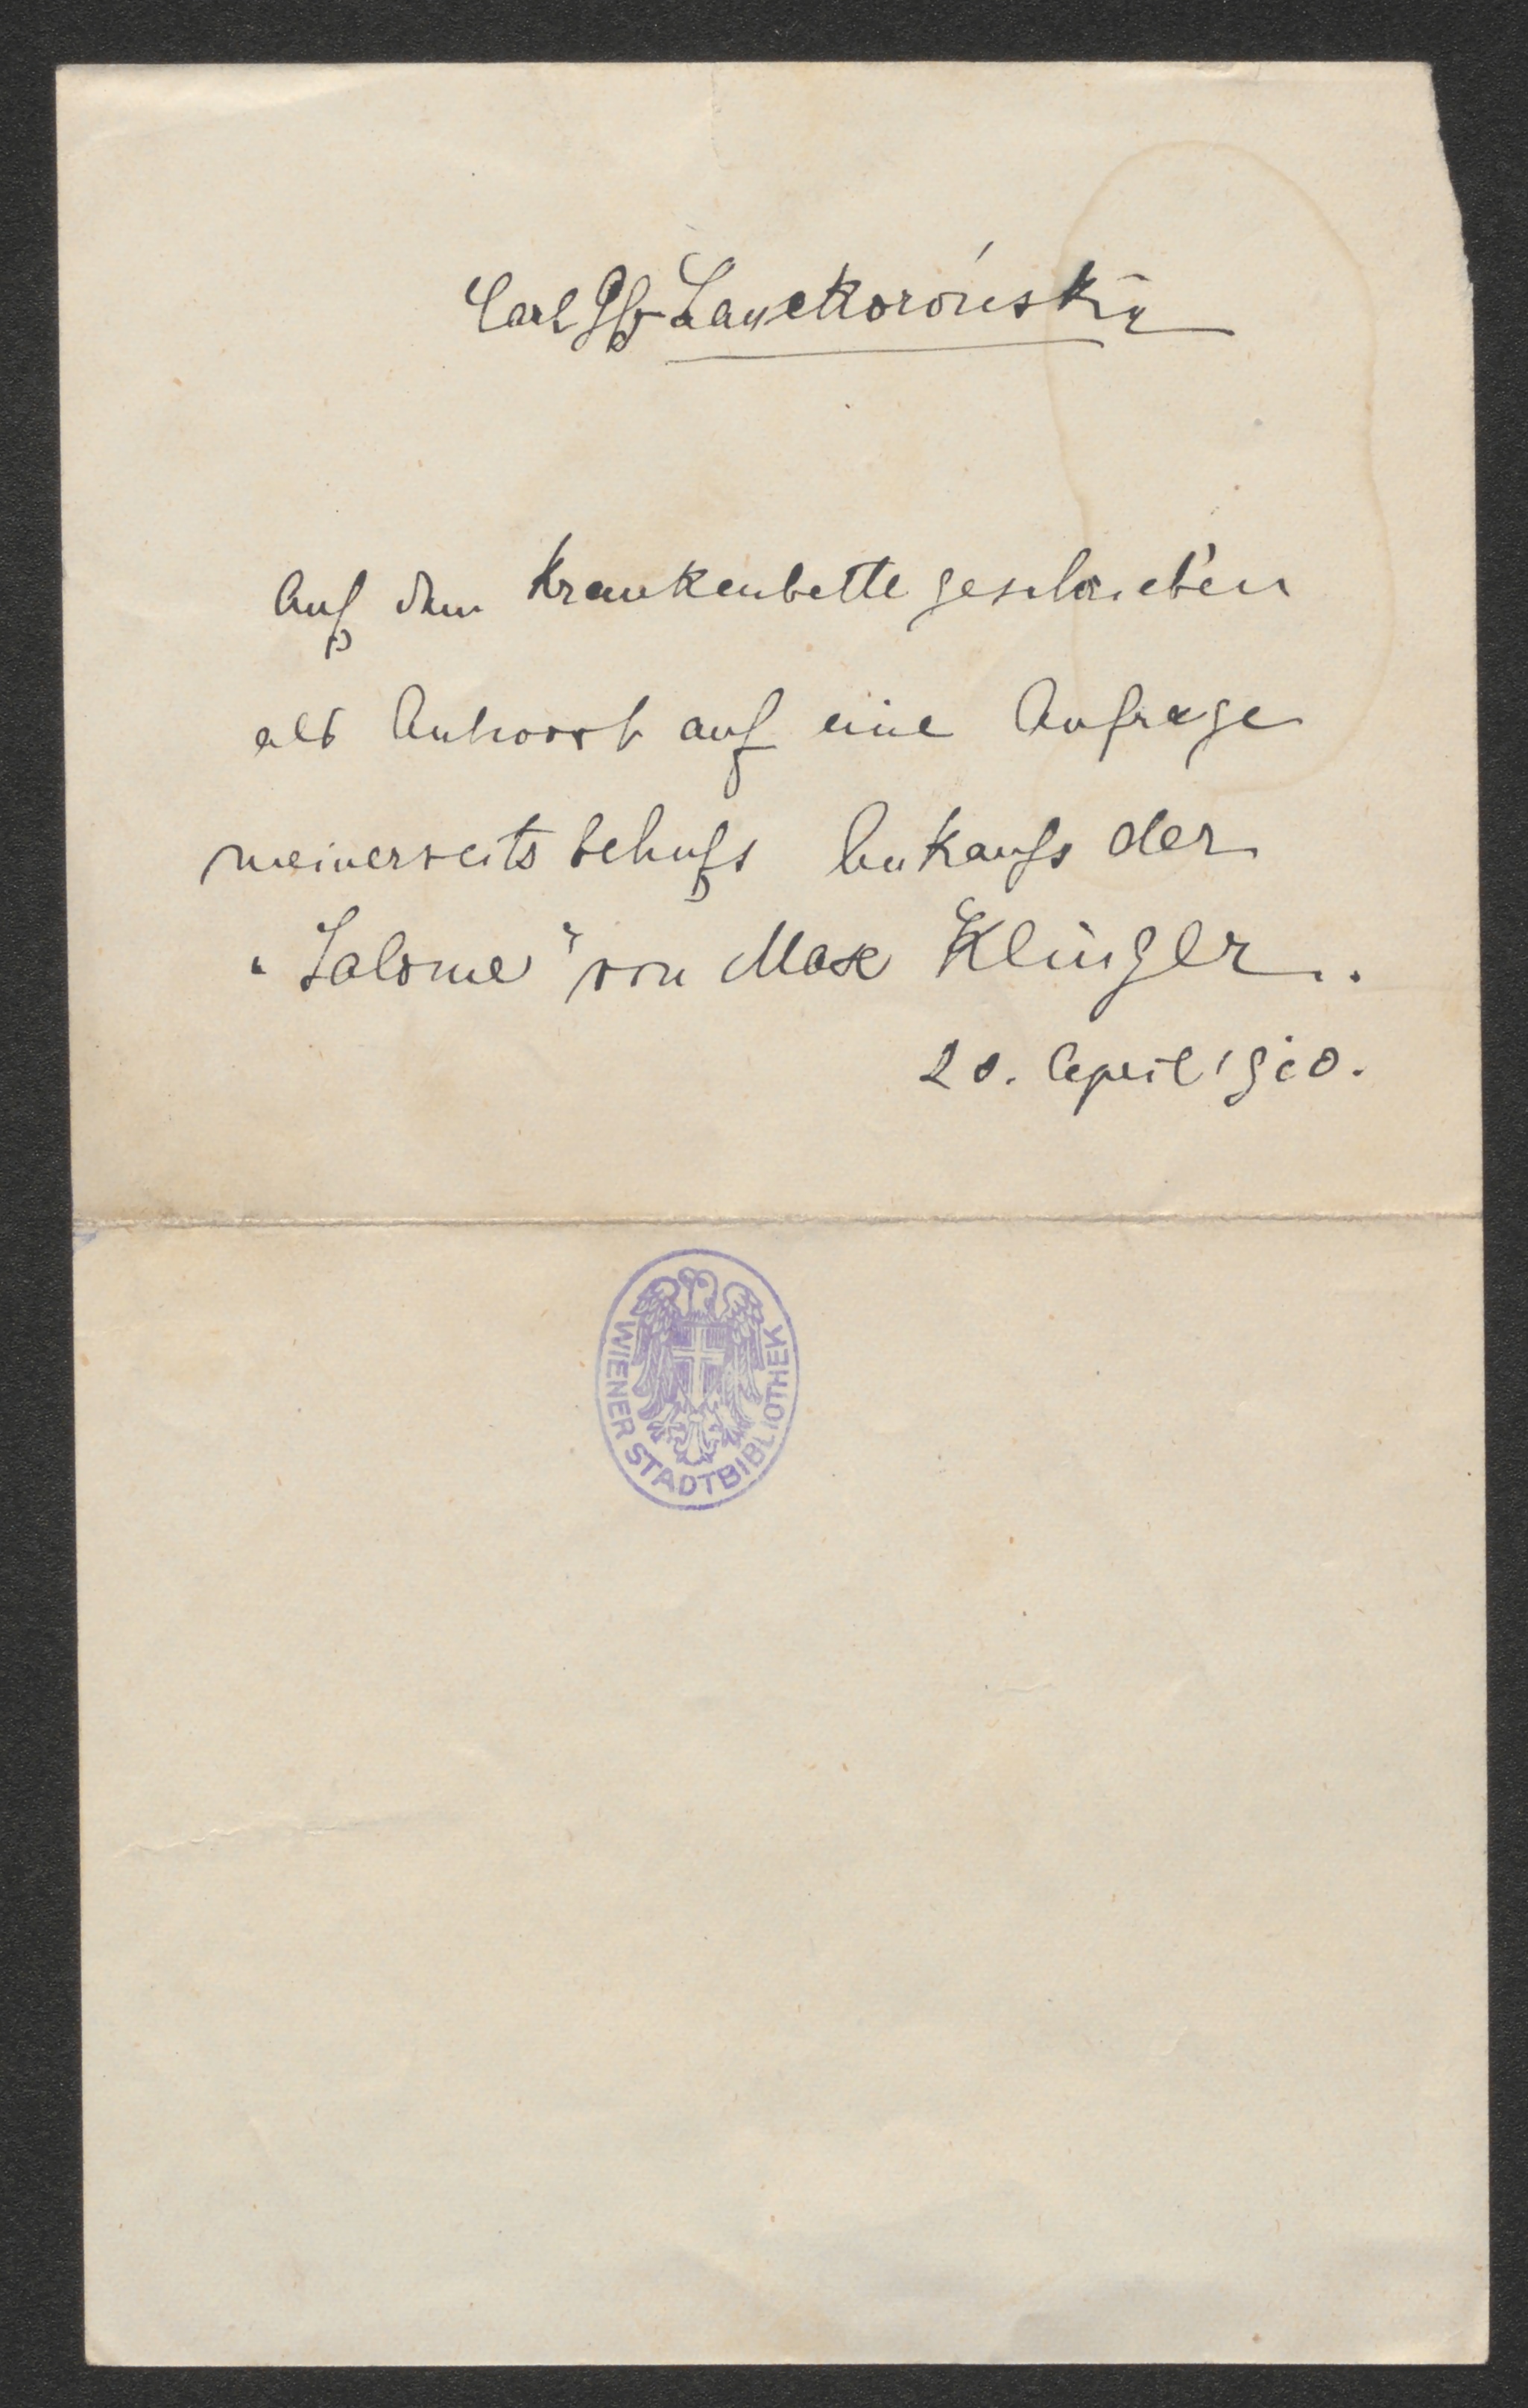 Carl Gf Lanckoroński
Auf dem Krankenbette geschrieben
als Antwort auf eine Anfrage
meinerseits behufs Ankaufs der
"Salome" von Max Klinger.
20. April 1910.
WIENER STADTBIBLIOTHEK